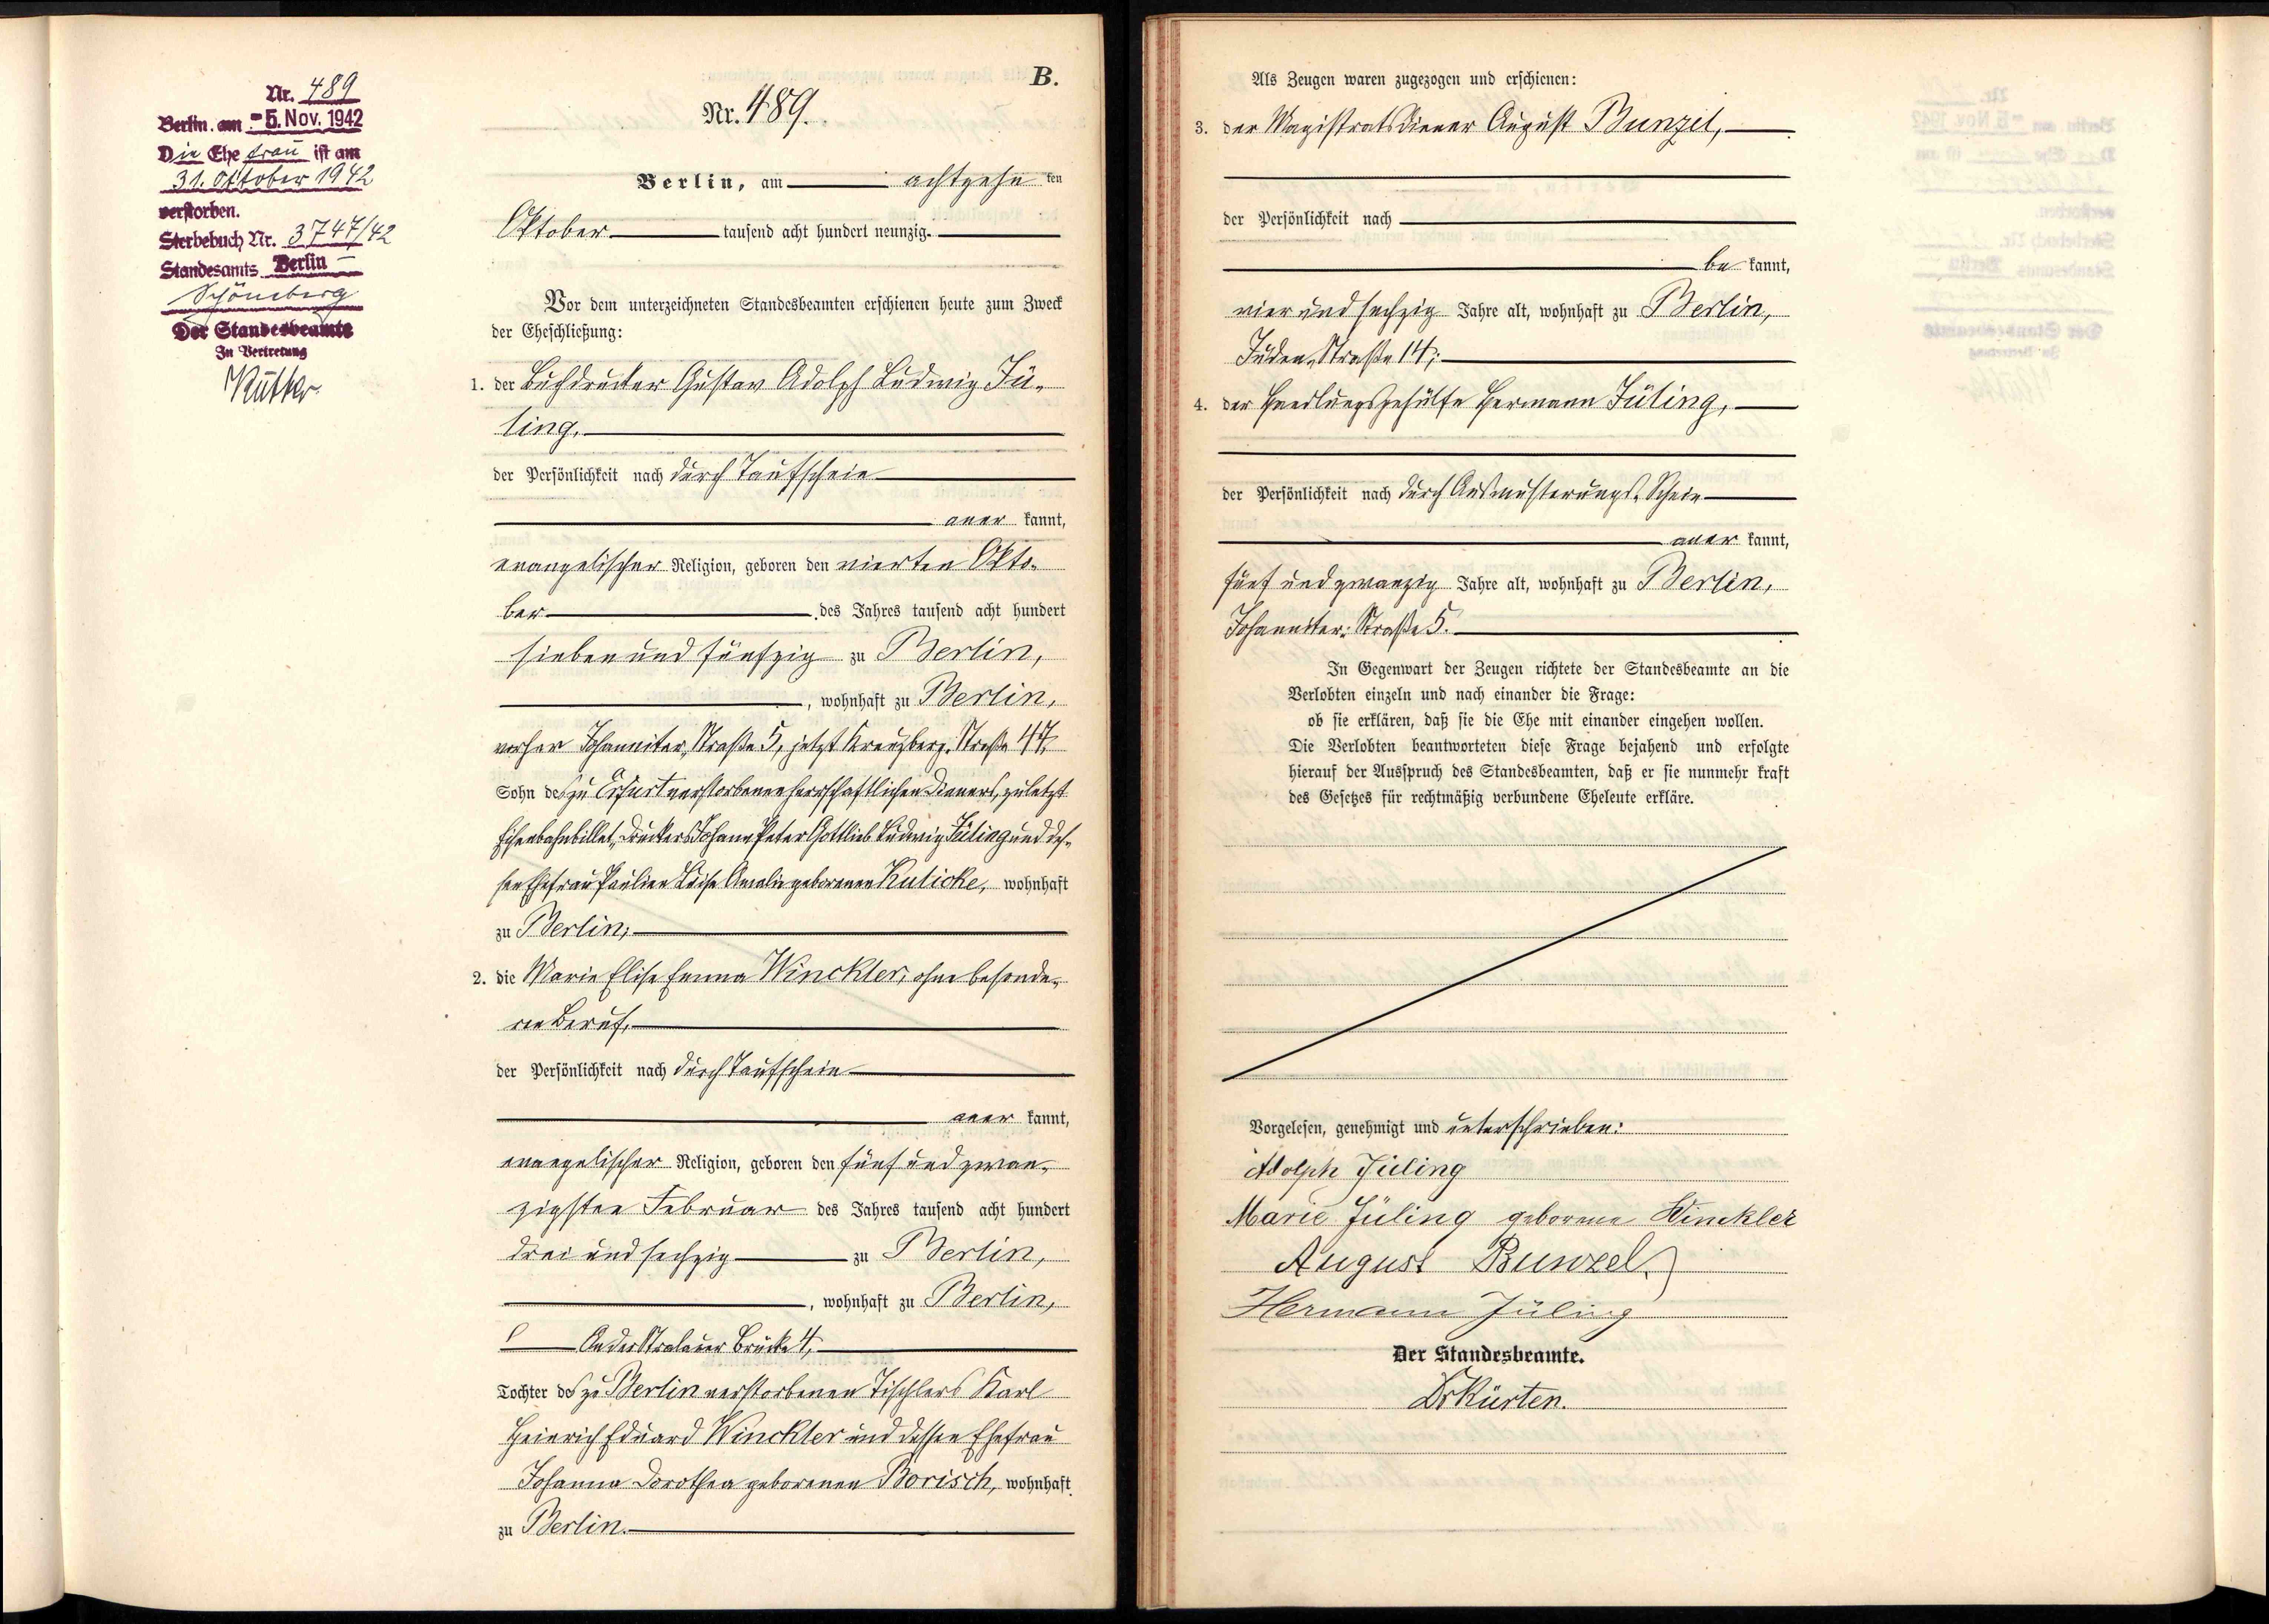 Nr. 489
Berlin, am - 5. Nov. 1942
Die Ehefrau ist am
31. Oktober 1942
verstorben.
Sterbebuch Nr. 3747/42
Standesamts Berlin -
Schöneberg
Der Standesbeamte
In Vertretung
B.
Nr. 489.
Berlin, am achtzehn ten
Oktober tausend acht hundert neunzig.
Vor dem unterzeichneten Standesbeamten erschienen heute zum Zweck
der Eheschließung:
1. der Buchdrucker Gustav Adolph Ludwig Jü-
ling,
der Persönlichkeit nach durch Taufschein
aner kannt,
evangelischer Religion, geboren den vierten Okto-
ber des Jahres tausend acht hundert
sieben und fünfzig zu Berlin,
, wohnhaft zu Berlin,
vorher Johanniter-Straße 5, jetzt Kreuzberg-Straße 47,
Sohn des zu Erfurt verstorbenen herrschaftlichen Dieners, zuletzt
Eisenbahnbillet-Druckers Johann Peter Gottlieb Ludwig Jüling und des-
sen Ehefrau Pauline Luise Amalie geborenen Kulicke, wohnhaft
zu Berlin;
2. die Marie Elise Emma Winckler, ohne besonde-
ren Beruf,
der Persönlichkeit nach durch Taufschein
aner kannt,
evangelischer Religion, geboren den fünf und zwan-
zigsten Februar des Jahres tausend acht hundert
drei und sechzig zu Berlin,
, wohnhaft zu Berlin,
An der Stralauer Brücke 4,
Tochter des zu Berlin verstorbenen Tischlers Karl
Heinrich Eduard Winckler und dessen Ehefrau
Johanna Dorothea geborenen Borisch, wohnhaft
zu Berlin.
Als Zeugen waren zugezogen und erschienen:
3. der Magistratsdiener August Bunzel,
der Persönlichkeit nach
be kannt,
vier und sechzig Jahre alt, wohnhaft zu Berlin,
Jüden-Straße 14;
4. der Handlungsgehülfe Hermann Jüling,
der Persönlichkeit nach durch Ausmusterungs-Schein
aner kannt,
fünf und zwanzig Jahre alt, wohnhaft zu Berlin,
Johanniter-Straße 5.
In Gegenwart der Zeugen richtete der Standesbeamte an die
Verlobten einzeln und nach einander die Frage:
ob sie erklären, daß sie die Ehe mit einander eingehen wollen.
Die Verlobten beantworteten diese Frage bejahend und erfolgte
hierauf der Ausspruch des Standesbeamten, daß er sie nunmehr kraft
des Gesetzes für rechtmäßig verbundene Eheleute erkläre.
Vorgelesen, genehmigt und unterschrieben:
Adolph Jüling
Marie Jüling geborene Winckler
August Bunzel
Hermann Jüling
Der Standesbeamte.
Dr Kürten.